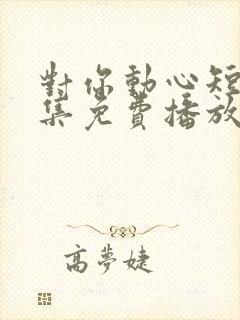 對你動心短
集免費播放
高夢婕